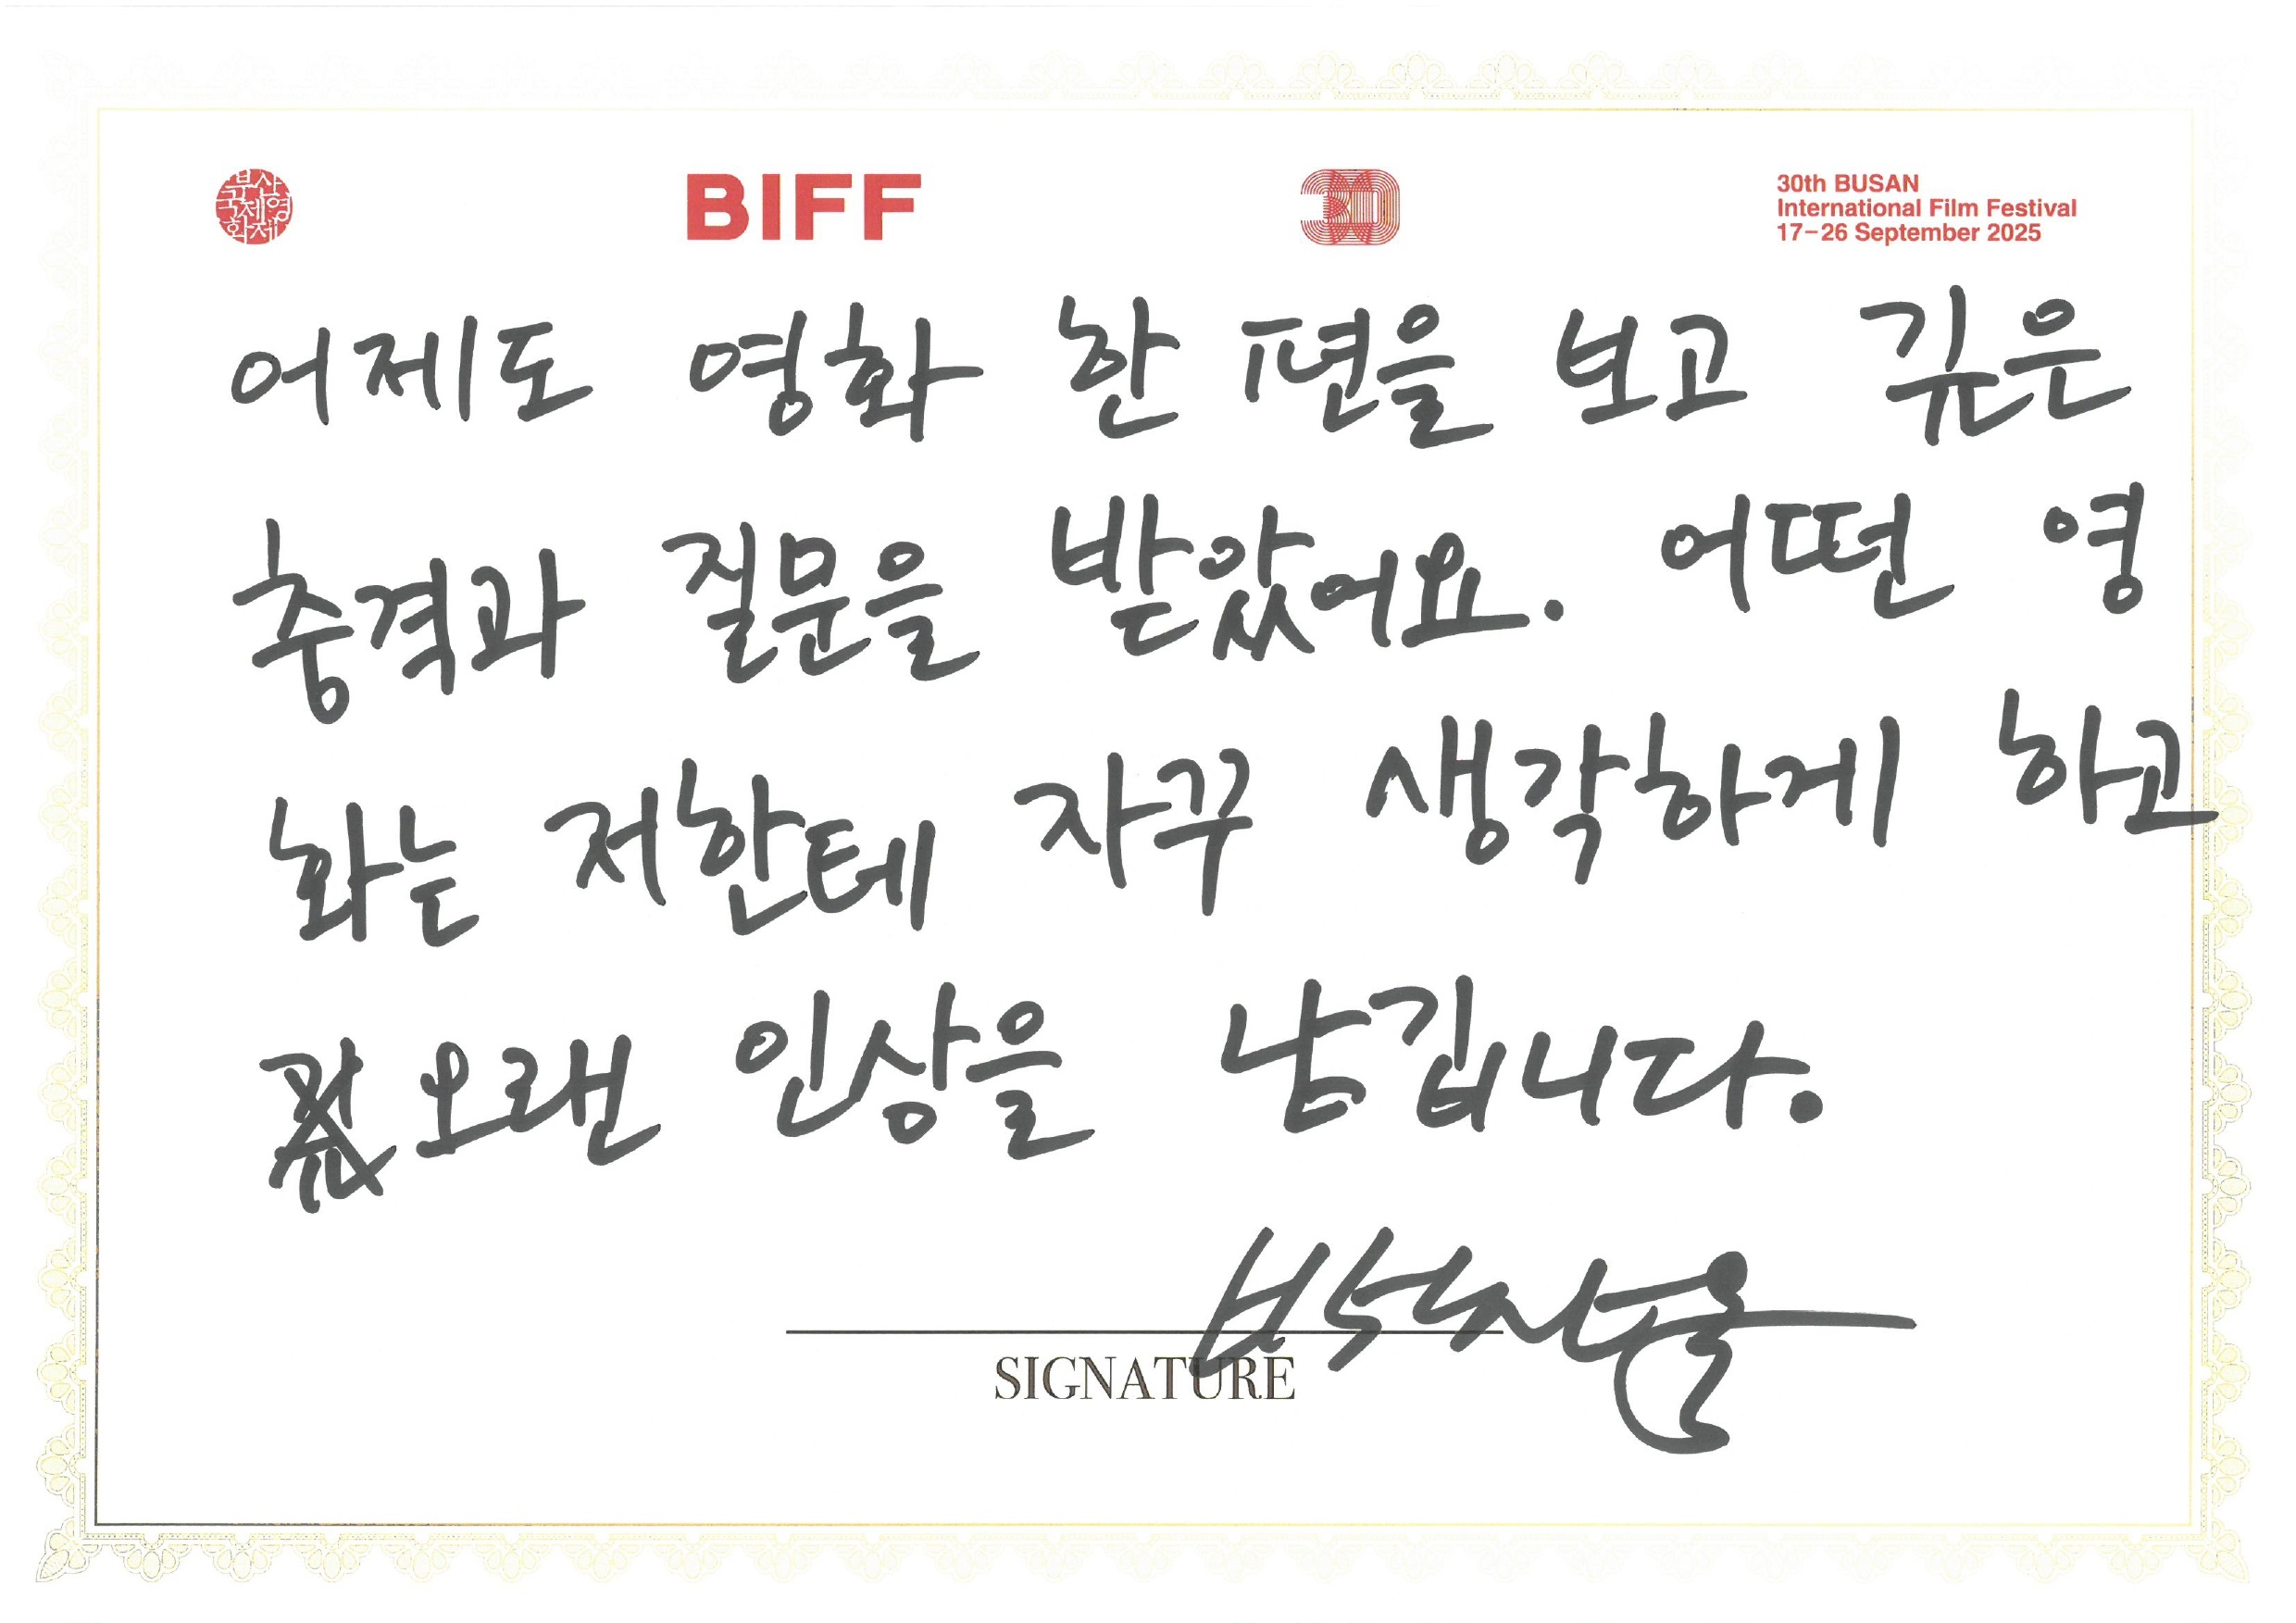 부산
국제영
화제
BIFF
30
30th BUSAN
International Film Festival
17–26 September 2025
어제도 영화 한 편을 보고 깊은
충격과 질문을 받았어요. 어떤 영
화는 저한테 자꾸 생각하게 하고
오랜 인상을 남깁니다.
SIGNATURE